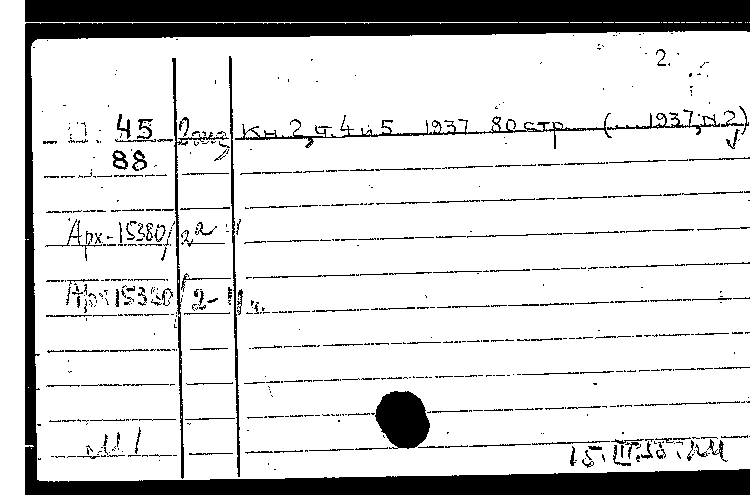 2.
П. 45 2 экз Кн. 2, ч. 4 и 5 1937 80 стр (... 1937, N.2)
88
Арх-15380/2
Арх 15380/2-
15.III.